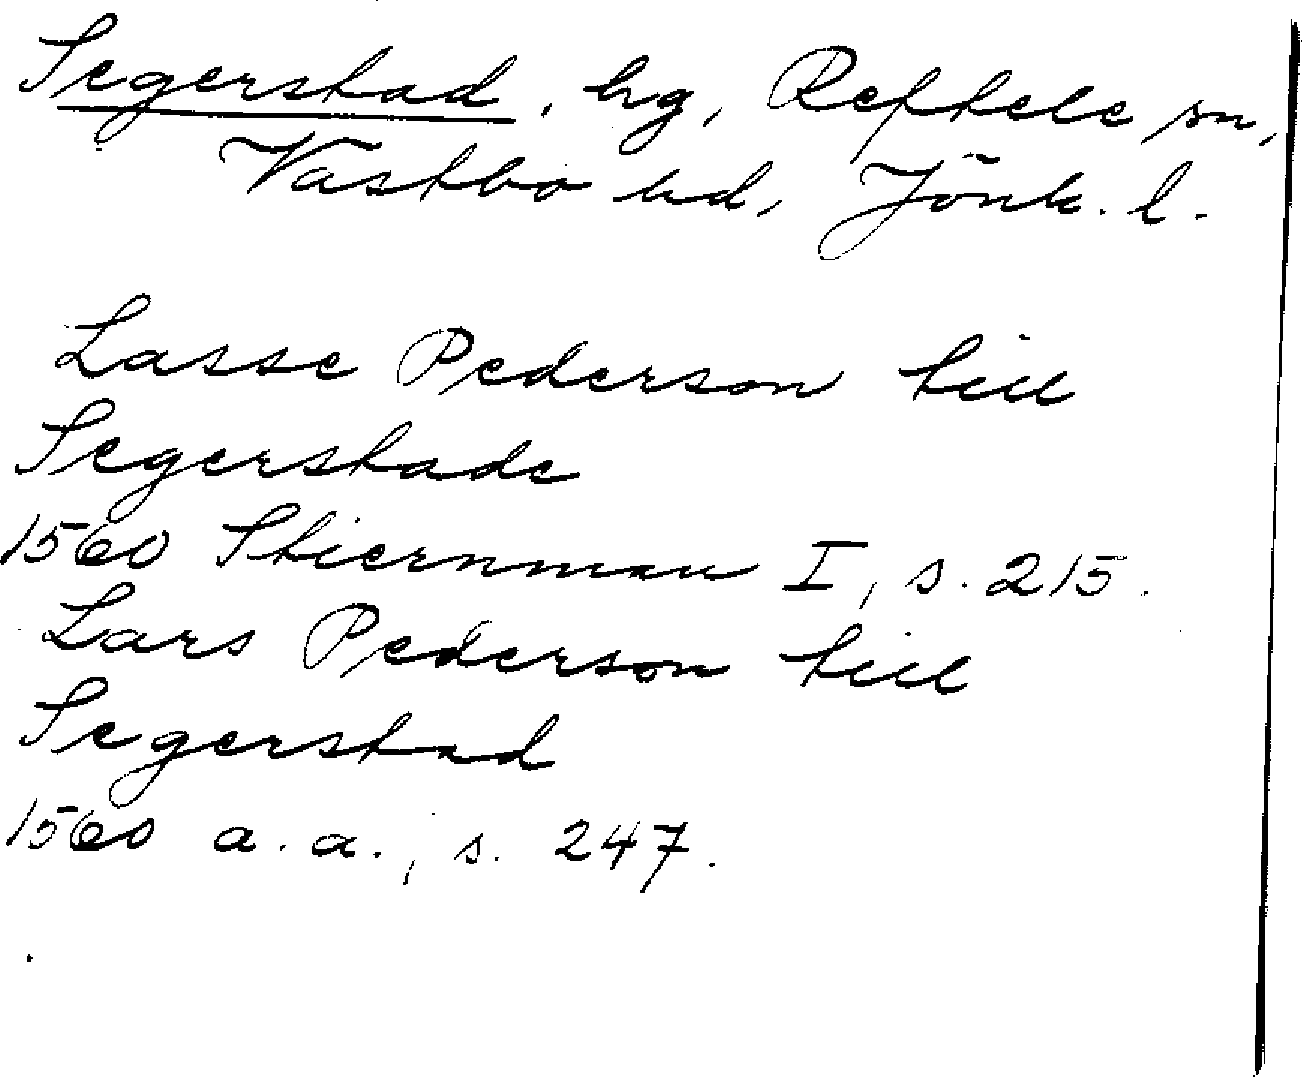 Segerstad, hg, Reftele sn,
Västbo hd, Jönk. l.
Lasse Pederson till
Segerstade
1560 Stiernman I, s. 215.
Lars Pederson till
Segerstad
1560 a. a., s. 247.